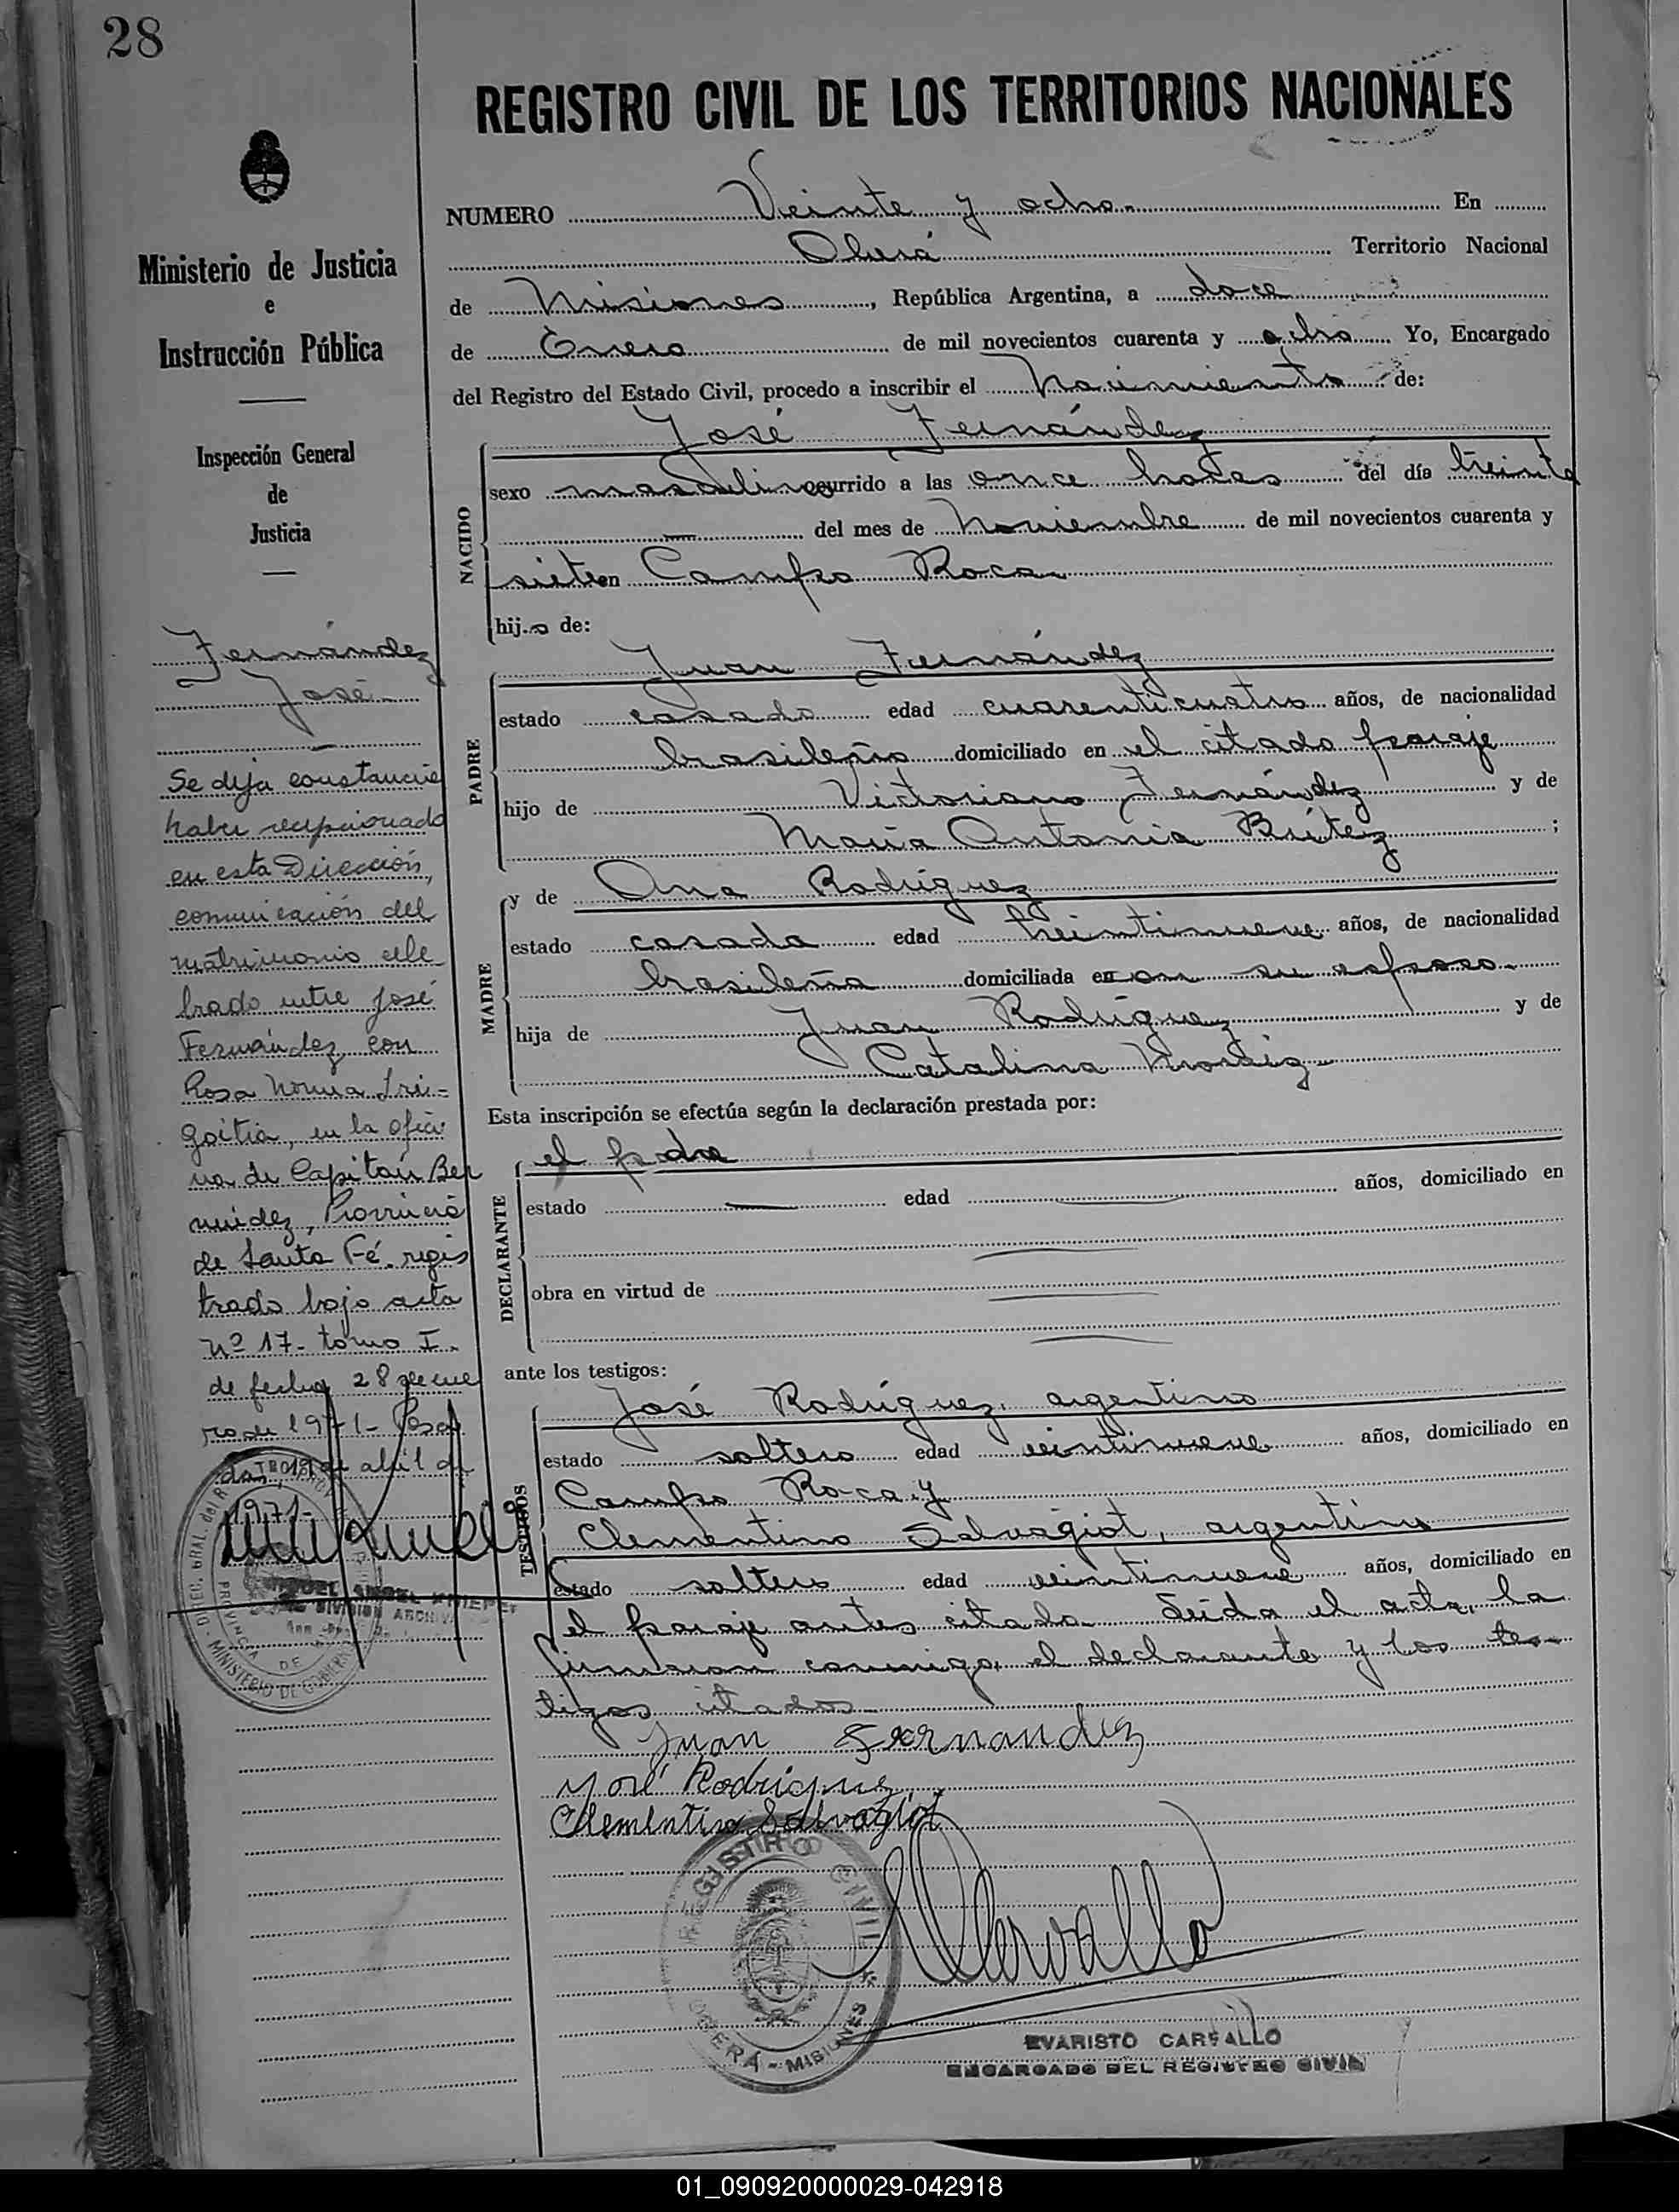 28
REGISTRO CIVIL DE LOS TERRITORIOS NACIONALES
Ministerio de Justicia
e
Instrucción Pública
Inspección General
de
Justicia
Fernández
José
Se deja constancia
haber recepcionado
en esta Dirección,
comunicación del
matrimonio cele
brado entre José
Fernández con
Rosa Norma Iri-
goitia, en la ofici
na de Capitán Ber
múdez, Provincia
de Santa Fé. regis
trado bajo acta
Nº 17- tomo I.
de fecha 28 de ene
ro de 1971- Posa
das, 19 de abril de
1971-
NUMERO Veinte y ocho.- En
Oberá Territorio Nacional
de Misiones, República Argentina, a doce
de Enero de mil novecientos cuarenta y ocho Yo, Encargado
del Registro del Estado Civil, procedo a inscribir el Nacimiento de:
NACIDO
José Fernández
sexo masculino ocurrido a las once horas del día treinta
del mes de Noviembre de mil novecientos cuarenta y
siete en Campo Roca
hijo de:
PADRE
Juan Fernández
estado casado edad cuarenticuatro años, de nacionalidad
brasileño domiciliado en el citado paraje
hijo de Victoriano Fernández y de
María Antonia Brítez;
MADRE
y de Ana Rodríguez
estado casada edad treintinueve años, de nacionalidad
brasileña domiciliada en con su esposo
hija de Juan Rodríguez y de
Catalina
Esta inscripción se efectúa según la declaración prestada por:
DECLARANTE
el padre
estado edad años, domiciliado en
obra en virtud de
ante los testigos:
TESTIGOS
José Rodríguez, argentino
estado soltero edad veintinueve años, domiciliado en
Campo Roca y
Clementino Salvagiot, argentino
estado soltero edad veintinueve años, domiciliado en
el paraje antes citado. Leída el acta, la
firmaron conmigo, el declarante y los tes-
tigos citados
Juan Fernandez
José Rodriguez
Clementino Salvagiot
REGISTRO CIVIL
OBERÁ - MISIONES
EVARISTO CARVALLO
ENCARGADO DEL REGISTRO CIVIL
01_090920000029-042918